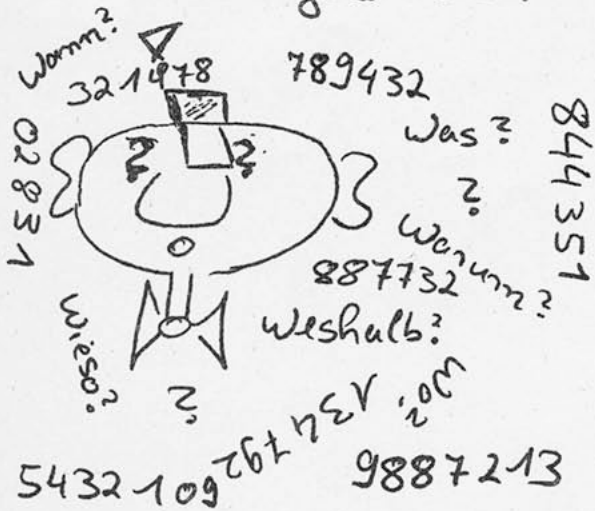 Wann?
321478
789432
Was?
?
844351
02831
? ?
Warum?
887732
Weshalb?
Wieso?
?
Wo?
134792
543210960
9887213